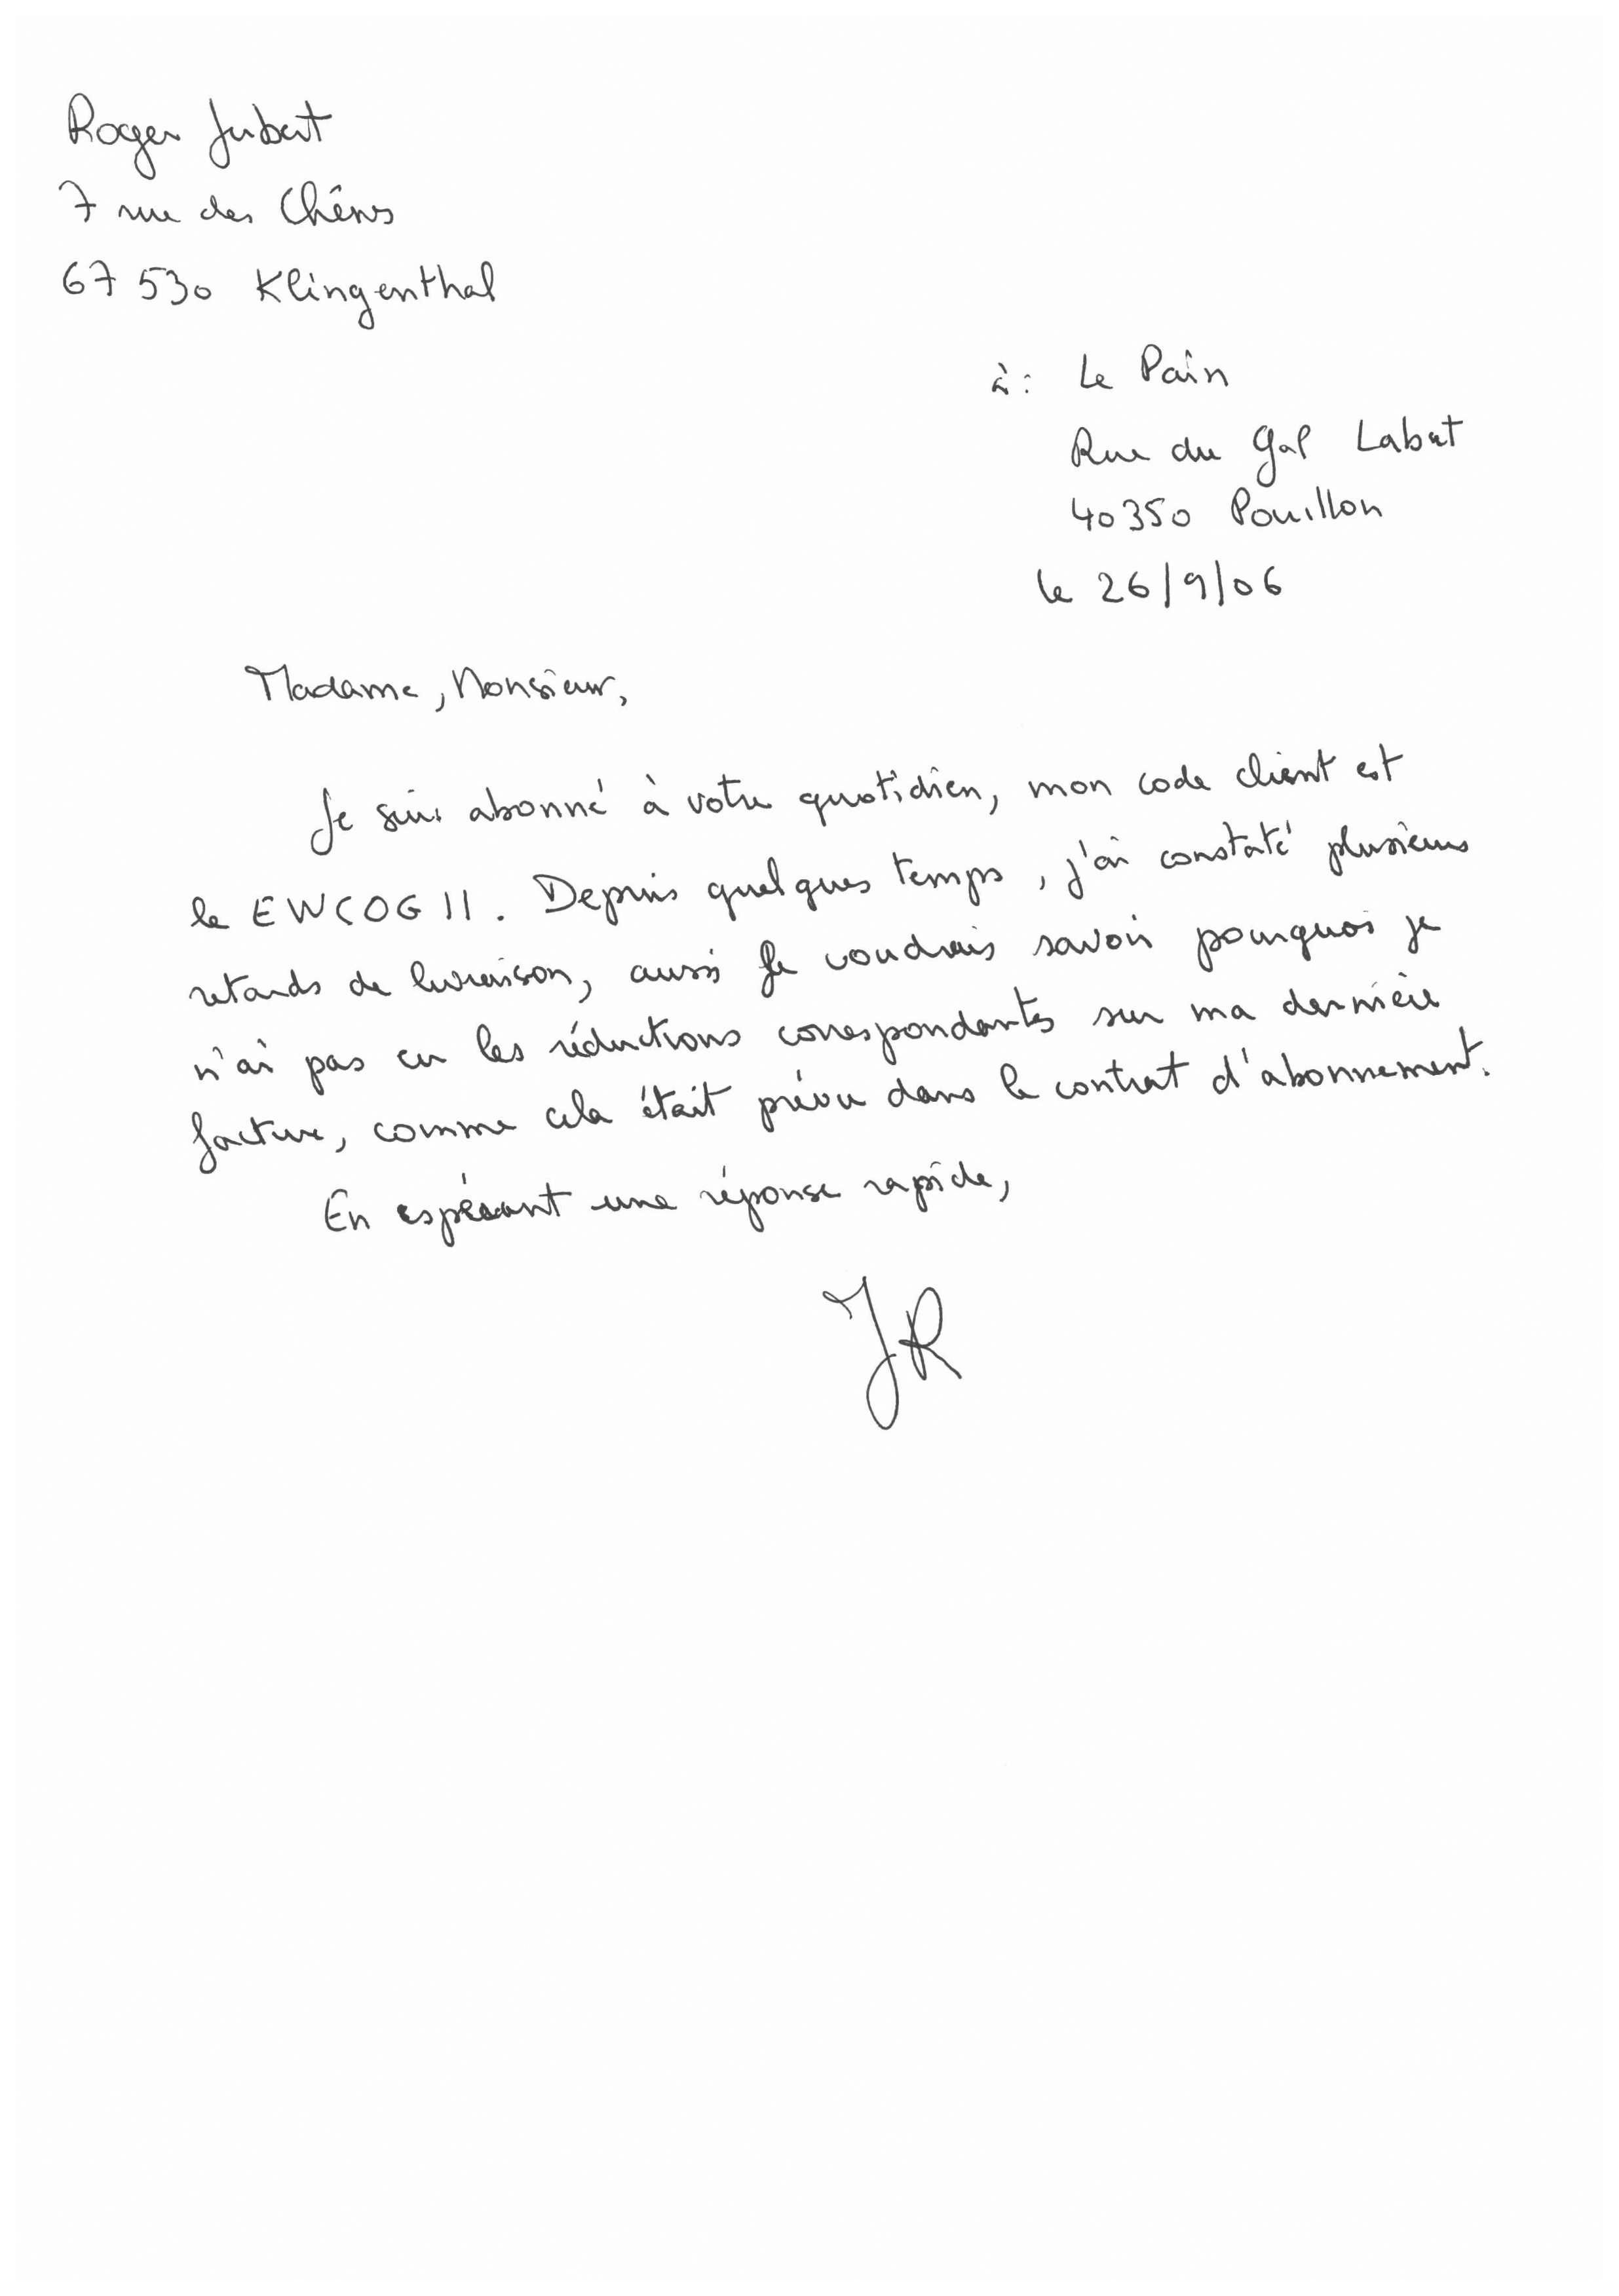 Roger Jubert
7 rue des Chênes
67 530 Klingenthal
à : Le Pain
Rue du Gal Labat
40350 Pouillon
le 26/9/06
Madame, Monsieur,
Je suis abonné à votre quotidien, mon code client est
le EWCOG11. Depuis quelques temps, j'ai constaté plusieurs
retards de livraison, aussi je voudrais savoir pourquoi je
n'ai pas eu les réductions correspondantes sur ma dernière
facture, comme cela était prévu dans le contrat d'abonnement.
En espérant une réponse rapide,
JR